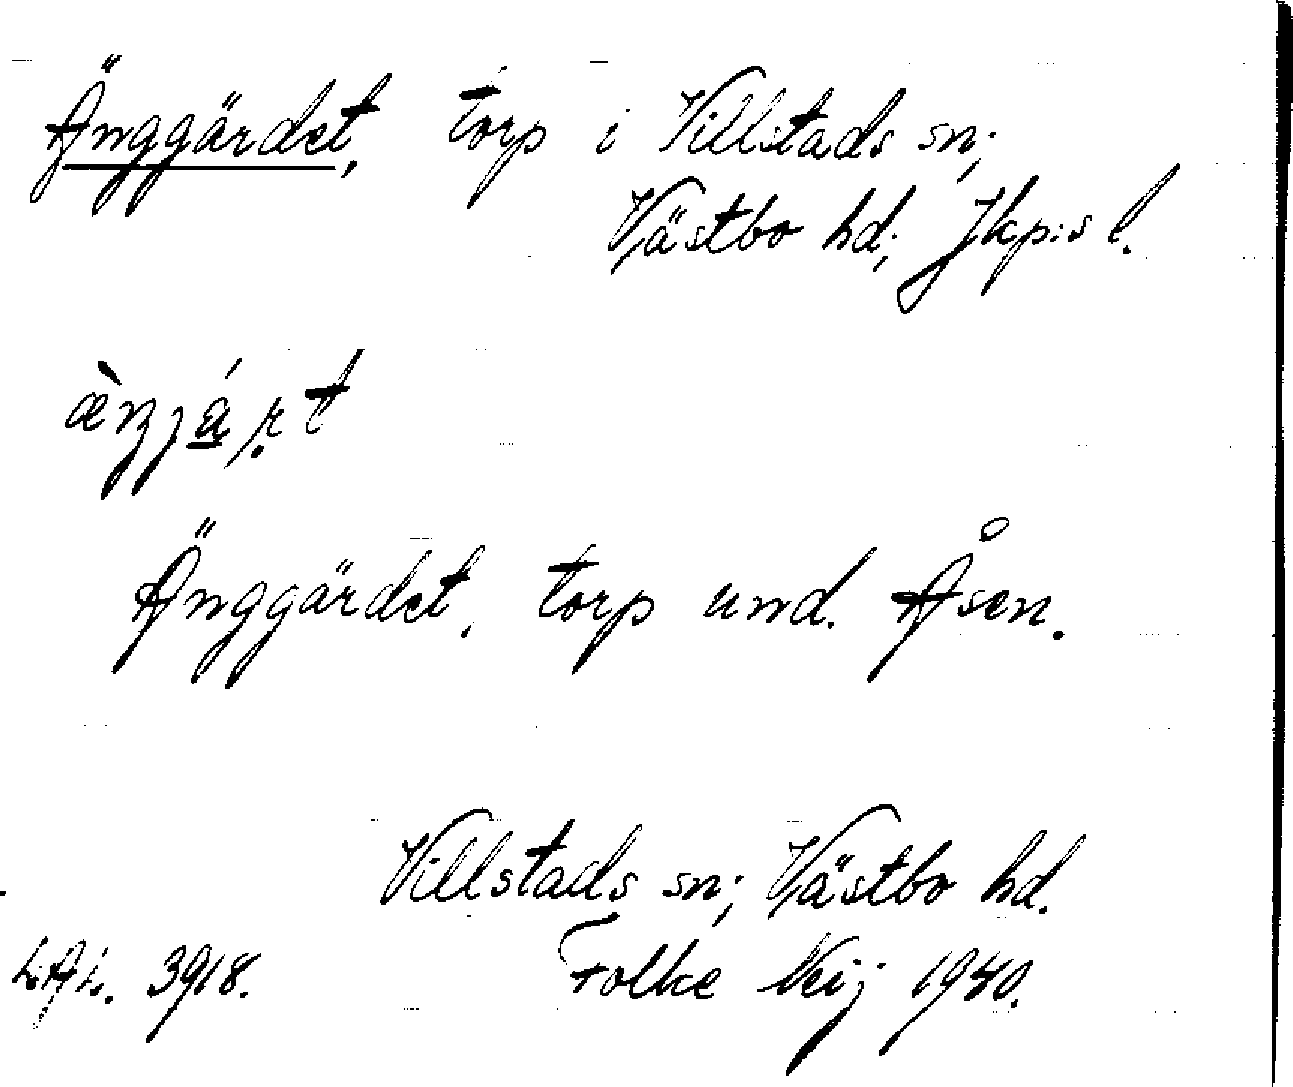 Änggärdet, torp i Villstads sn;
Västbo hd; Jkp:s l.
Änggärdet, torp und. Åsen.
Villstads sn; Västbo hd.
3918. Folke Neij 1940.